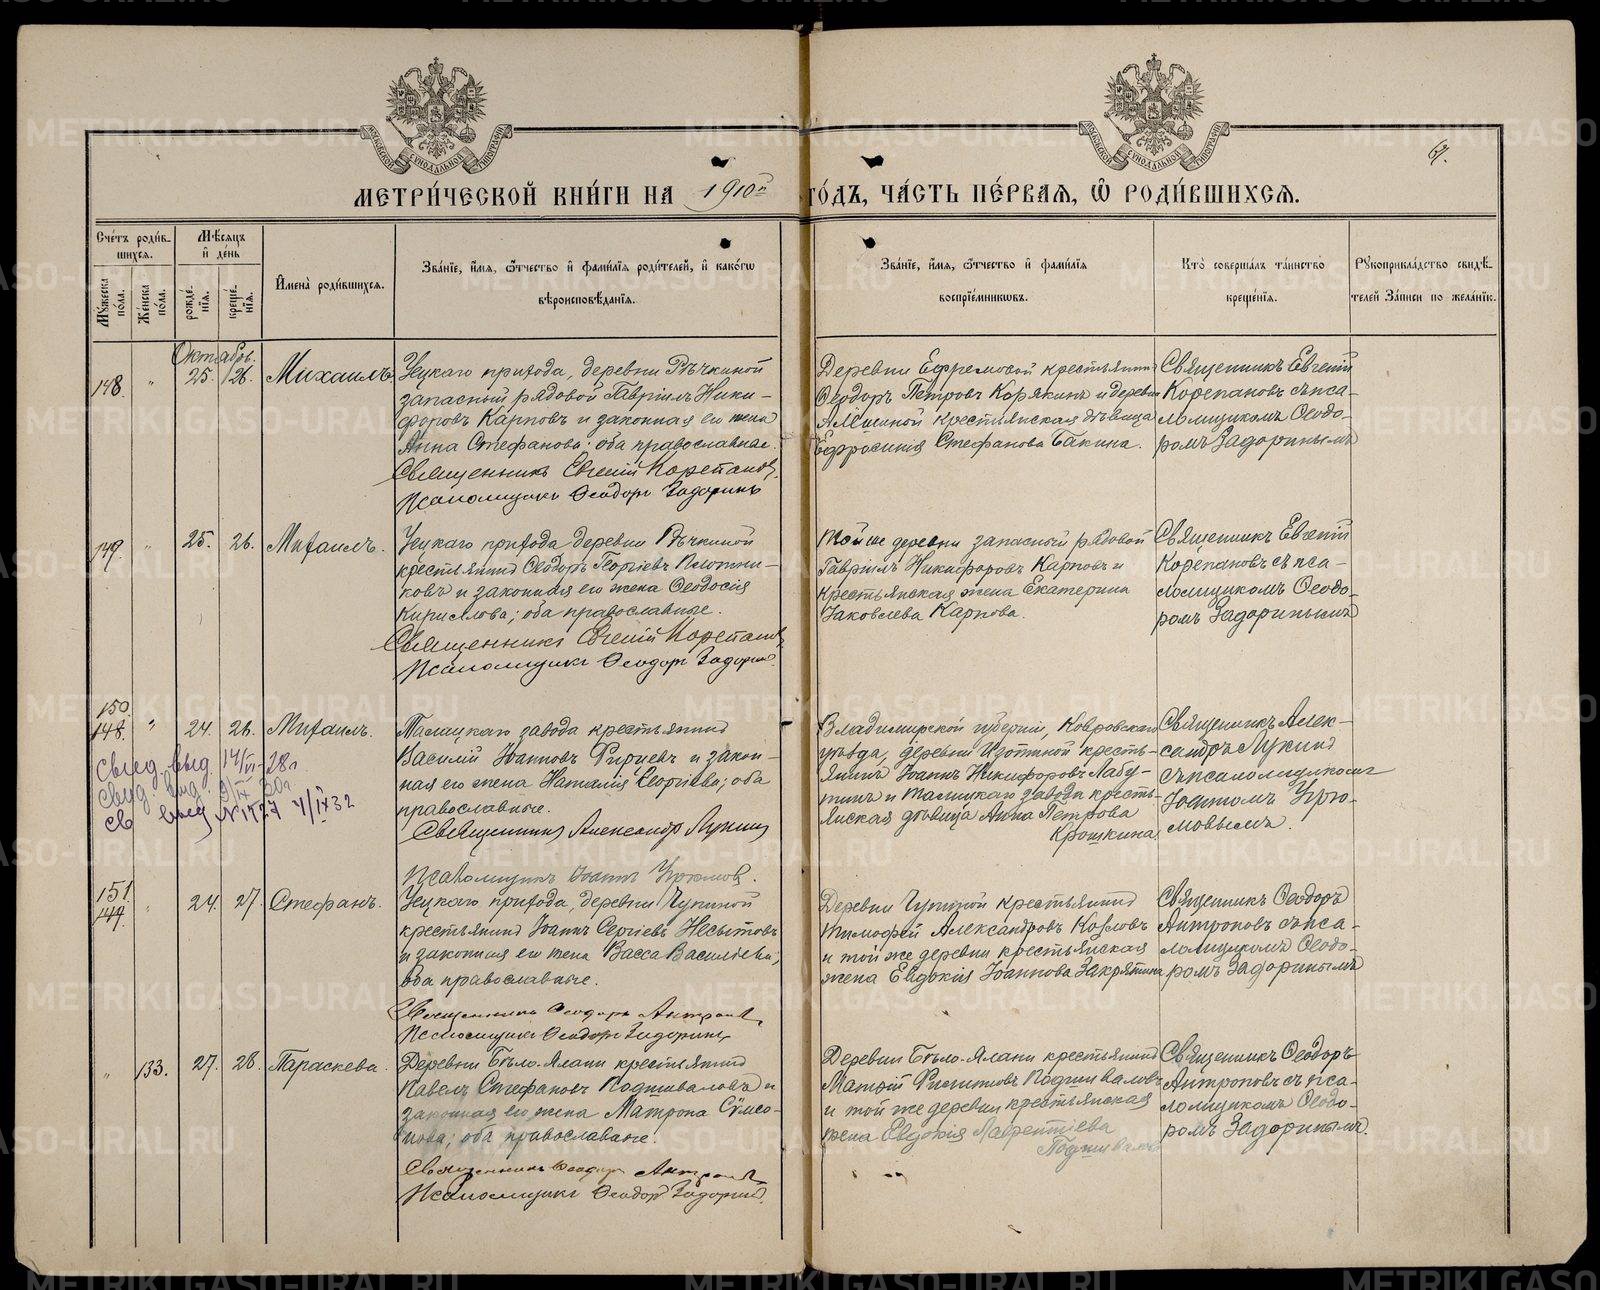 МОСКОВСКОЙ СѴНОДАЛЬНОЙ ТИПОГРАФІИ
МОСКОВСКОЙ СѴНОДАЛЬНОЙ ТИПОГРАФІИ
МЕТРИ́ЧЕСКОЙ КНИ́ГИ НА 1910й ГО́ДЪ, ЧА́СТЬ ПЕ́РВАЯ, Ѽ РОДИ́ВШИХСЯ.
Сче́тъ роди́вшихся.
Му́жеска по́ла.
Же́нска по́ла.
Мѣ́сяцъ и де́нь
рожде́нія.
креще́нія.
Имена̀ роди́вшихся.
Зва́ніе, и́мя, ѻ҆́тчество и фами́лія роди́телей, и како́гѡ
вѣроисповѣ́данія.
Зва́ніе, и́мя, ѻ҆́тчество и фами́лія
воспріе́мниковъ.
Кто̀ соверша́лъ та́инство
креще́нія.
Рꙋкоприкла́дство свидѣ́-
телей за́писи по жела́нію.
Октябрь.
148. " 25. 26. Михаилъ
Уецкаго прихода, деревни Рѣчкиной
запасный рядовой Гавріилъ Ники-
форовъ Карповъ и законная его жена
Анна Стефанова; оба православные.
Священникъ Евгеній Корепановъ
Псаломщикъ Ѳеодоръ Задоринъ
Деревни Ефремовой крестьянинъ
Ѳеодоръ Петровъ Корякинъ и деревни
крестьянская дѣвица
Ефросинія Стефанова Бакина.
Священникъ Евгеній
Корепановъ съ пса-
ломщикомъ Ѳеодо-
ромъ Задоринымъ
149. " 25. 26. Михаилъ.
Уецкаго прихода деревни Рѣчкиной
крестьянинъ Ѳеодоръ Георгіевъ Плотни-
ковъ и законная его жена Ѳеодосія
Кириллова; оба православные.
Священникъ Евгеній Корепановъ
Псаломщикъ Ѳеодоръ Задоринъ
Той же деревни запасный рядовой
Гавріилъ Никифоровъ Карповъ и
крестьянская жена Екатерина
Іаковлева Карпова.
Священникъ Евгеній
Корепановъ съ пса-
ломщикомъ Ѳеодо-
ромъ Задоринымъ
150.
148. " 24. 26. Михаилъ.
свид. выд. 14/VI-28г.
свид. выд.
св выд № 1727 4/IX 32
Талицкаго завода крестьянинъ
Василій Іоанновъ и закон-
ная его жена Наталія Георгіева; оба
православные.
Священникъ Александръ Лукинъ
Псаломщикъ Іоаннъ Урюмовъ.
Владимирской губерніи, Ковровскаго
уѣзда, деревни Изотиной кресть-
янинъ Іоаннъ Никифоровъ Лабу-
тинъ и Талицкаго завода кресть-
янская дѣвица Анна Петрова
Крошкина.
Священникъ Алек-
сандръ Лукинъ
съ псаломщикомъ
Іоанномъ Урю-
мовымъ.
151.
149. " 24. 27. Стефанъ.
Уецкаго прихода, деревни Чупиной
крестьянинъ Іоаннъ Сергіевъ Несытовъ
и законная его жена Васса Васильева;
оба православные.
Священникъ Ѳеодоръ Антроповъ
Псаломщикъ Ѳеодоръ Задоринъ
Деревни Чупиной крестьянинъ
Тимофей Александровъ Козловъ
и той же деревни крестьянская
жена Евдокія Іоаннова Закрятина
Священникъ Ѳеодоръ
Антроповъ съ пса-
ломщикомъ Ѳеодо-
ромъ Задоринымъ
" 133. 27. 28. Параскева.
Деревни Бѣло-Елани крестьянинъ
Павелъ Стефановъ Подшиваловъ и
законная его жена Матрона Сѵмео-
нова; оба православные.
Священникъ Ѳеодоръ Антроповъ
Псаломщикъ Ѳеодоръ Задоринъ.
Деревни Бѣло-Елани крестьянинъ
Матѳій Филипповъ Подшиваловъ
и той же деревни крестьянская
жена Евдокія Лаврентіева
Подшивалова
Священникъ Ѳеодоръ
Антроповъ съ пса-
ломщикомъ Ѳеодо-
ромъ Задоринымъ.
METRIKI.GASO-URAL.RU